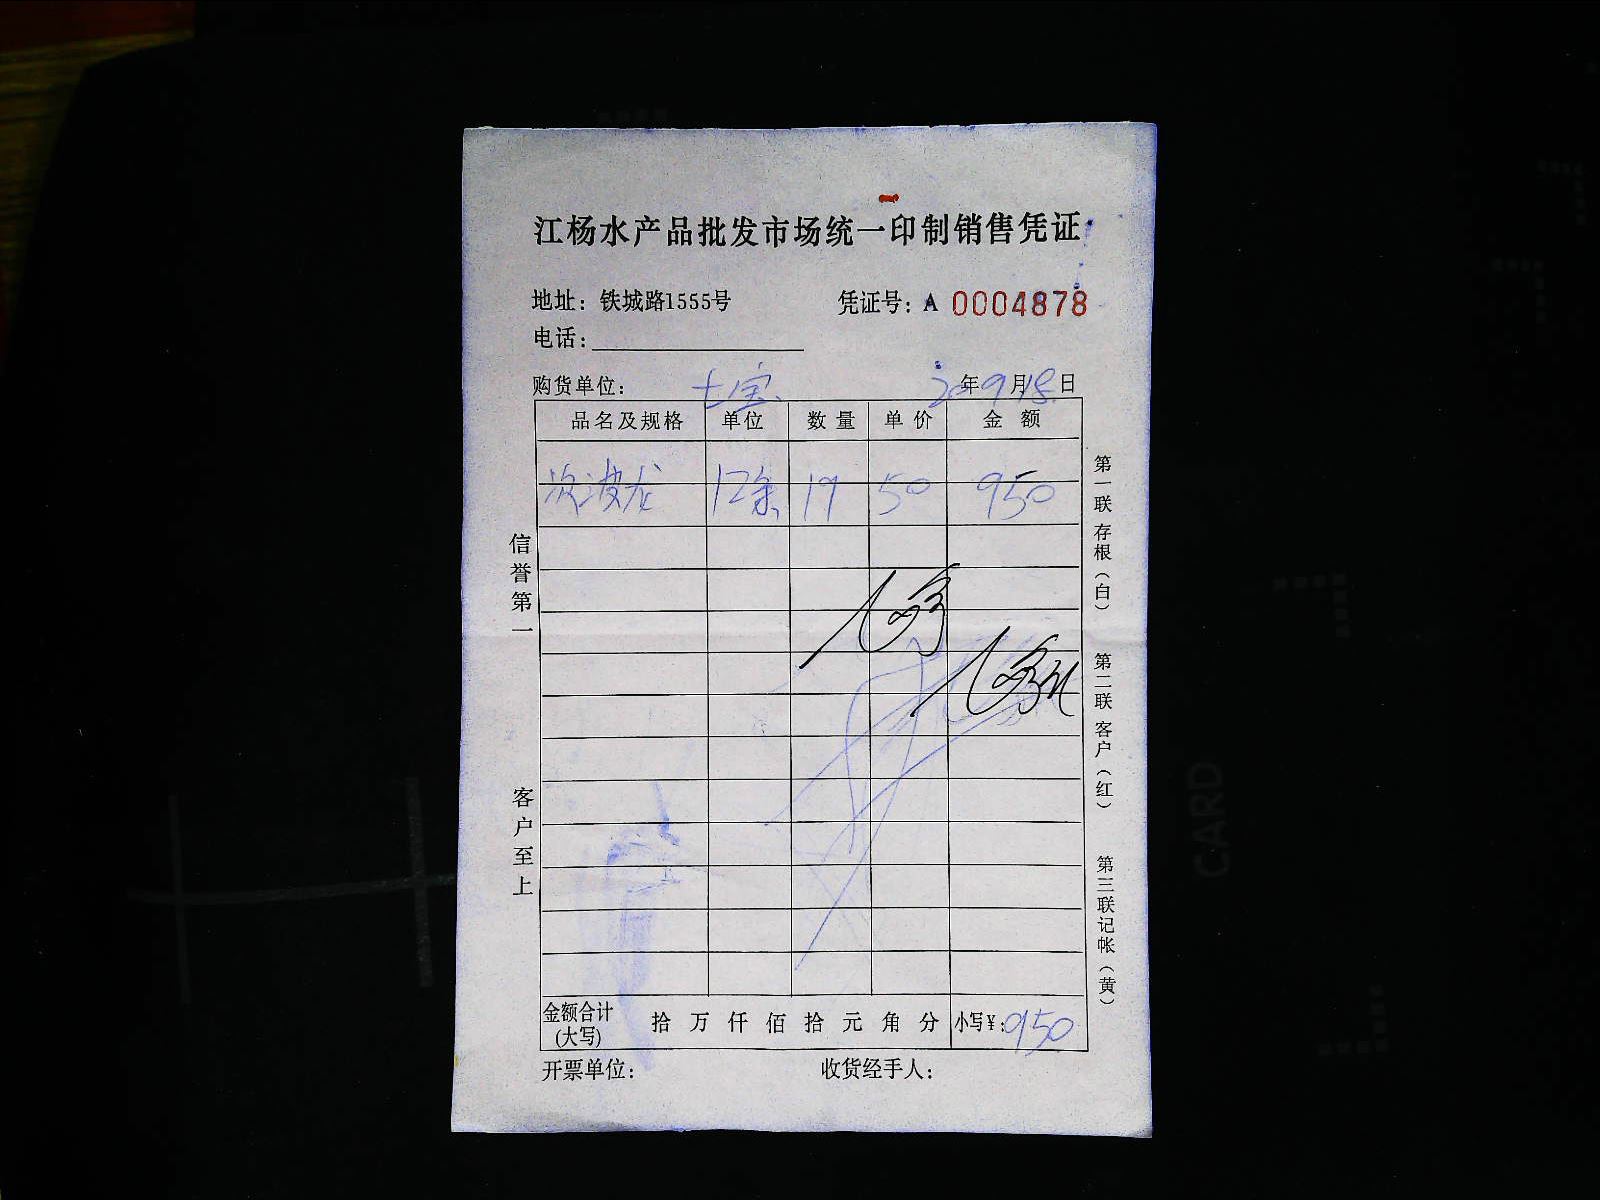 江杨水产品批发市场统一印制销售凭证
地址：铁城路1555号
凭证号：A 0004878
电话：
购货单位：七宝
20年9月18日
品名及规格 单位 数量 单价 金额
次波龙 12条 19 50 950
信誉第一
客户至上
第一联 存根（白）
第二联 客户（红）
第三联 记帐（黄）
金额合计(大写) 拾 万 仟 佰 拾 元 角 分 小写¥：950
开票单位：
收货经手人：
CARD